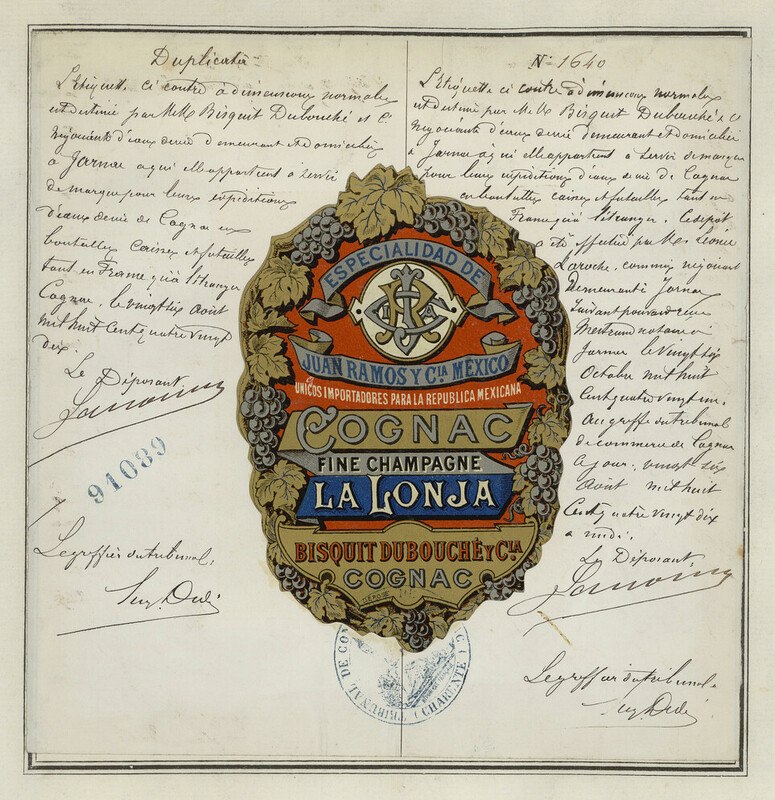 Duplicata
L'étiquette ci contre à dimensions normales
est destinée par MM. Bisquit Dubouché et C.
négociants d'eaux de vie demeurant et domiciliés
à Jarnac à qui elle appartient à servir
de marque pour leurs expéditions
d'eaux de vie de Cognac en
bouteilles caisses et futailles
tant en France qu'à l'étranger
Cognac, le vingt six août
mil huit cent quatre vingt
dix.
Le Déposant
91089
Le greffier du tribunal,
N° 1640
L'étiquette ci contre à dimensions normales
est destinée par MM. Bisquit Dubouché & C
négociants d'eaux de vie demeurant et domiciliés
à Jarnac à qui elle appartient à servir de marque
pour leurs expéditions d'eaux de vie de Cognac
en bouteilles caisses et futailles tant en
France qu'à l'étranger. Ce dépôt
a été effectué par M. Léonce
Laroche, commis négociant
demeurant à Jarnac
suivant pouvoir reçu
notaire à
Jarnac le vingt six
Octobre mil huit
cent quatre vingt un.
au greffe du tribunal
de commerce de Cognac
ce jour, vingt six
Août mil huit
cent quatre vingt dix
à midi.
Le Déposant,
Le greffier du tribunal
ESPECIALIDAD DE
JUAN RAMOS Y CIA MÉXICO
UNICOS IMPORTADORES PARA LA REPUBLICA MEXICANA
COGNAC
FINE CHAMPAGNE
LA LONJA
BISQUIT DUBOUCHÉ Y CIA
COGNAC
DÉPOSÉ
TRIBUNAL DE COM
(CHARENTE)